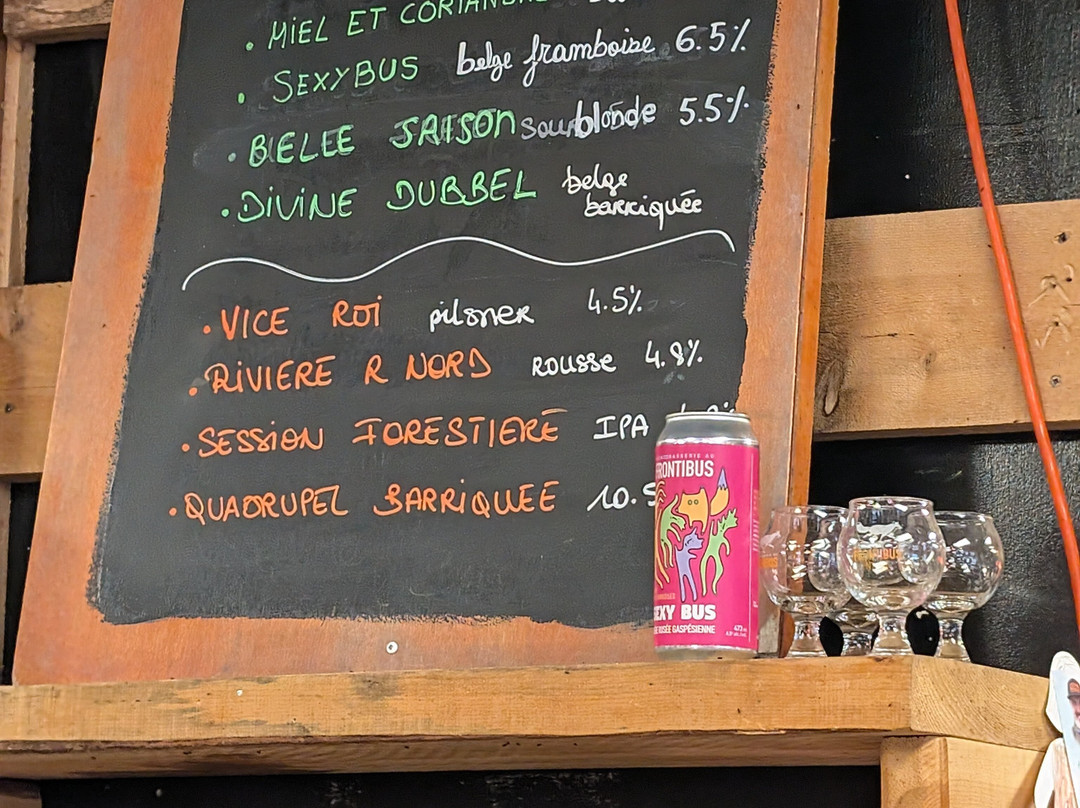 • MIEL ET CORIANDRE
• SEXYBUS belge framboise 6.5%
• BIELLE SAISON sour blonde 5.5%
• DIVINE DUBBEL belge
barriquée
• VICE ROI pilsner 4.5%
• RIVIERE R NORD ROUSSE 4.8%
• SESSION FORESTIERE IPA
• QUADRUPEL BARRIQUEE 10.5
FRONTIBUS
SEXY BUS
ROSÉE GASPÉSIENNE
473